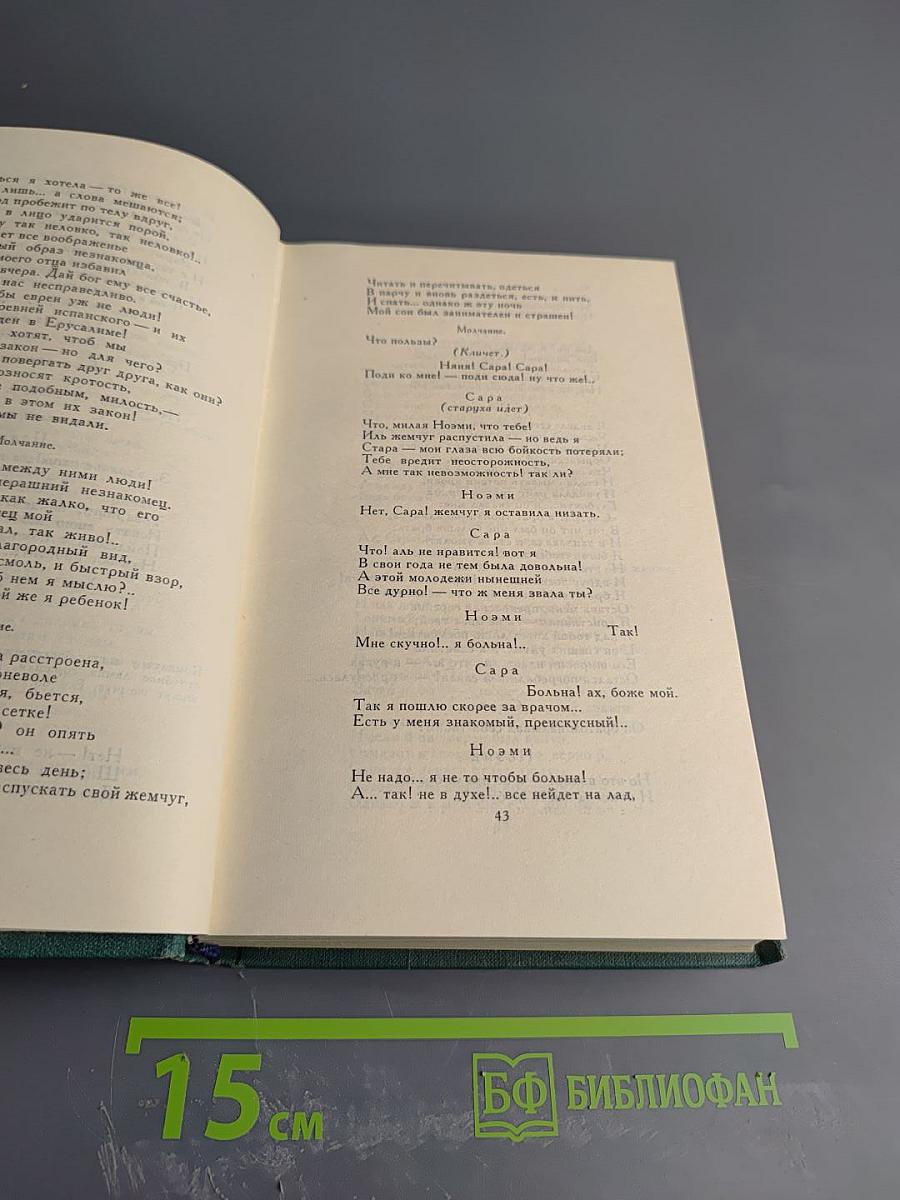 ться я хотела — то же все!
лишь... а слова мешаются;
пробежит по телу вдруг,
в лицо ударится порой,
так неловко, так неловко!..
ет все воображенье
ый образ незнакомца,
моего отца избавил
вчера. Дай бог ему все счастье,
нас несправедливо.
бы евреи уж не люди!
ревней испанского — и их
ден в Ерусалиме!
хотят, чтоб мы
закон — но для чего?
повергать друг друга, как они?
озносят кротость,
подобным, милость,—
в этом их закон!
мы не видали.
Молчание.
между ними люди!
черашний незнакомец.
как жалко, что его
ец мой
ал, так живо!..
лагородный вид,
смоль, и быстрый взор,
б нем я мыслю?..
ой же я ребенок!
ие.
а расстроена,
оневоле
я, бьется,
сетке!
он опять
...
весь день;
спускать свой жемчуг,
Читать и перечитывать, одеться
В парчу и вновь раздеться, есть, и пить,
И спать... однако ж эту ночь
Мой сон был занимателен и страшен!
Молчание.
Что пользы?
(Кличет.)
Няня! Сара! Сара!
Поди ко мне! — поди сюда! ну что же!..
Сара
(старуха идет)
Что, милая Ноэми, что тебе!
Иль жемчуг распустила — но ведь я
Стара — мои глаза всю бойкость потеряли;
Тебе вредит неосторожность,
А мне так невозможность! так ли?
Ноэми
Нет, Сара! жемчуг я оставила низать.
Сара
Что! аль не нравится! вот я
В свои года не тем была довольна!
А этой молодежи нынешней
Все дурно! — что ж меня звала ты?
Ноэми
Так!
Мне скучно!.. я больна!..
Сара
Больна! ах, боже мой.
Так я пошлю скорее за врачом...
Есть у меня знакомый, преискусный!..
Ноэми
Не надо... я не то чтобы больна!
А... так! не в духе!.. все нейдет на лад,
43
15 см
БФ БИБЛИОФАН